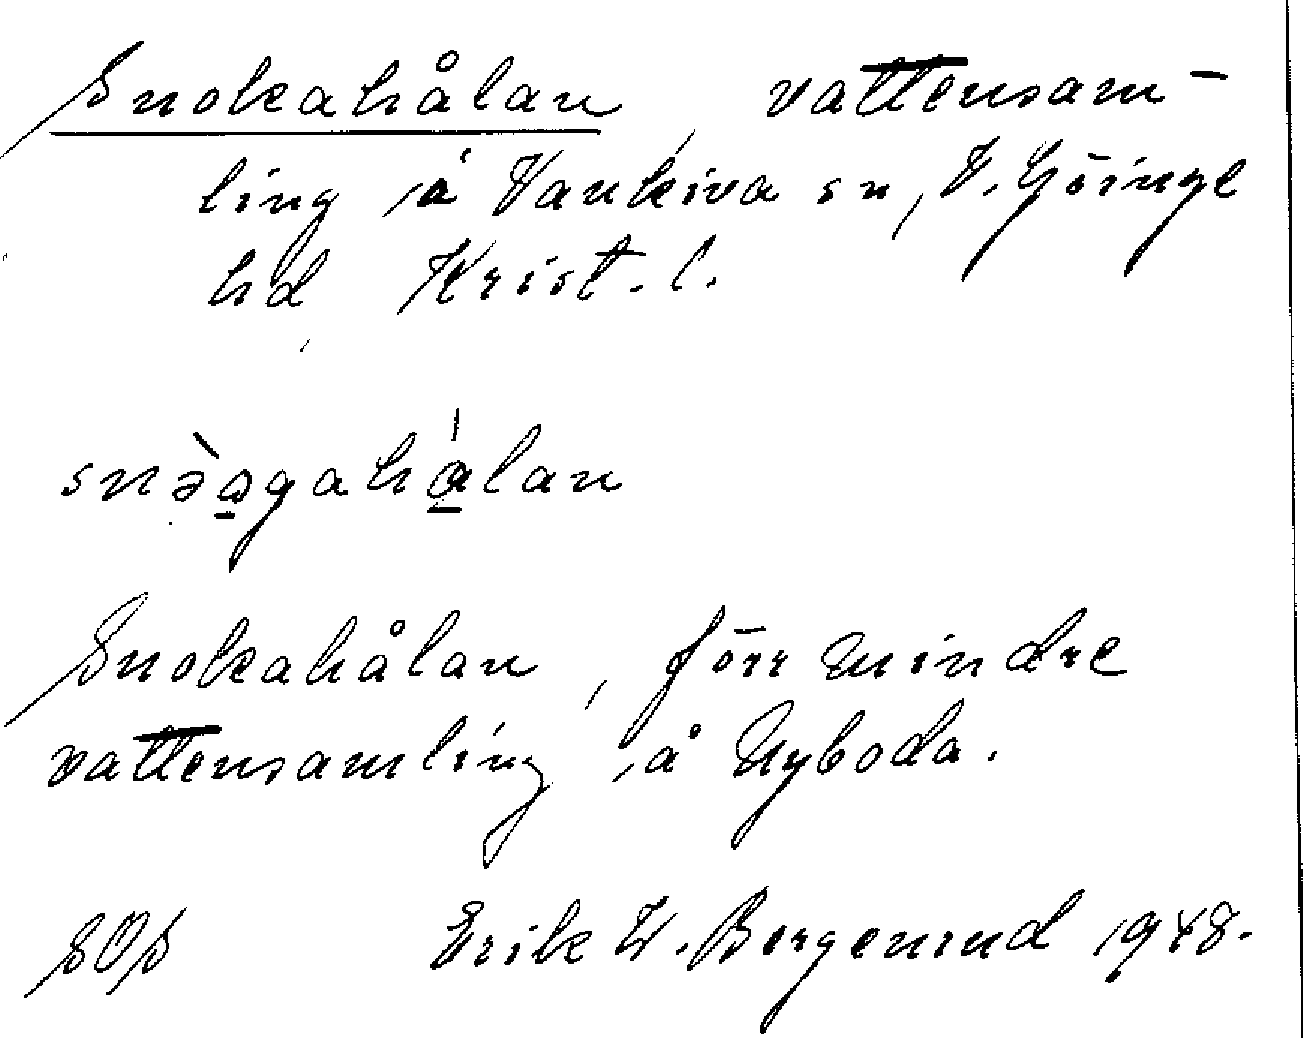 Snokahålan, vattensam-
ling å Vankiva sn, V. Göinge
hd Krist. l.
snòagahålan
Snokahålan, förr mindre
vattensamling å Nyboda.
SOS Erik W. 1948.